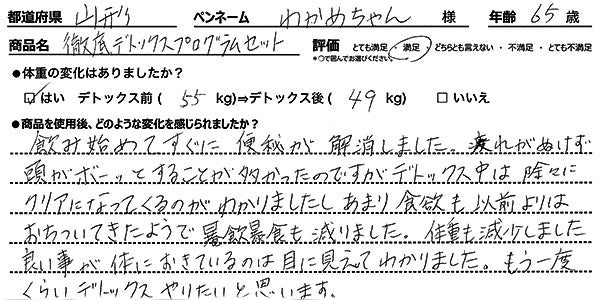 都道府県 山形 ペンネーム わかめちゃん 様 年齢 65 歳
商品名 徹底デトックスプログラムセット 評価 とても満足・満足・どちらとも言えない・不満足・とても不満足
※○で囲んでお選びください。
●体重の変化はありましたか？
☑はい デトックス前（ 55 kg)⇒デトックス後（ 49 kg) □いいえ
●商品を使用後、どのような変化を感じられましたか？
飲み始めてすぐに 便秘が 解消しました。疲れがぬけず
頭がボーッとすることが多かったのですがデトックス中は 除々に
クリアになってくるのがわかりましたし あまり 食欲も 以前よりは
おちついてきたようで 暴飲暴食も減りました。体重も減少しました
良い事が 体におきているのは 目に見えてわかりました。もう一度
くらい デトックス やりたいと思います。